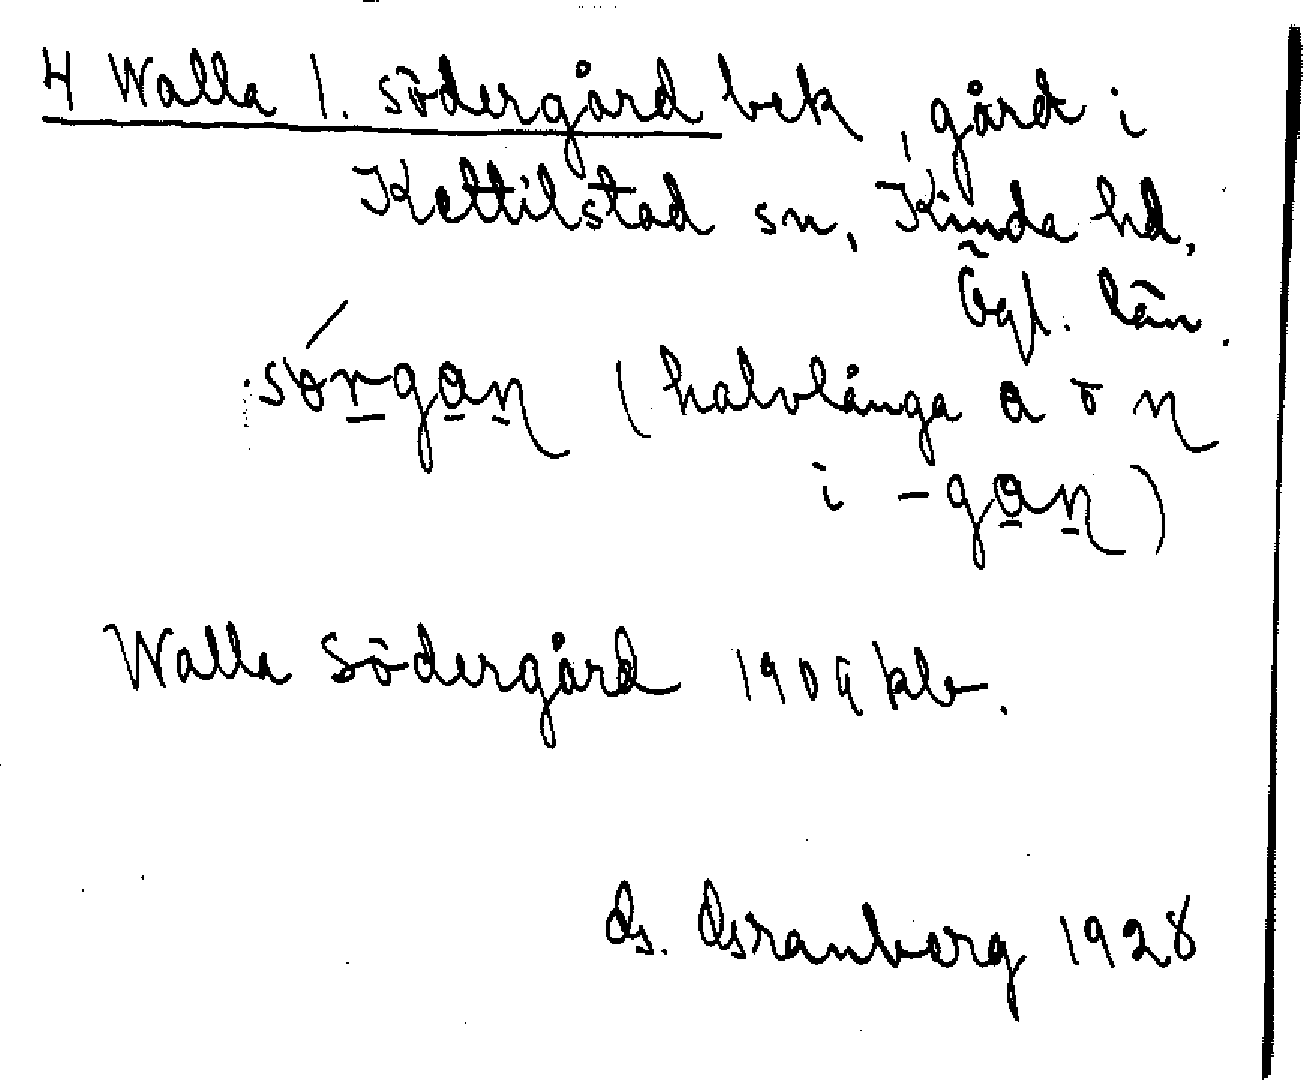 4 Walla l. södergård bek, gård i
Kettilstad sn, Kinda hd,
Ögl. län.
sórgan (halvlånga a o n
i -gan)
Walla Södergård 1909 kbr.
G. Granberg 1928